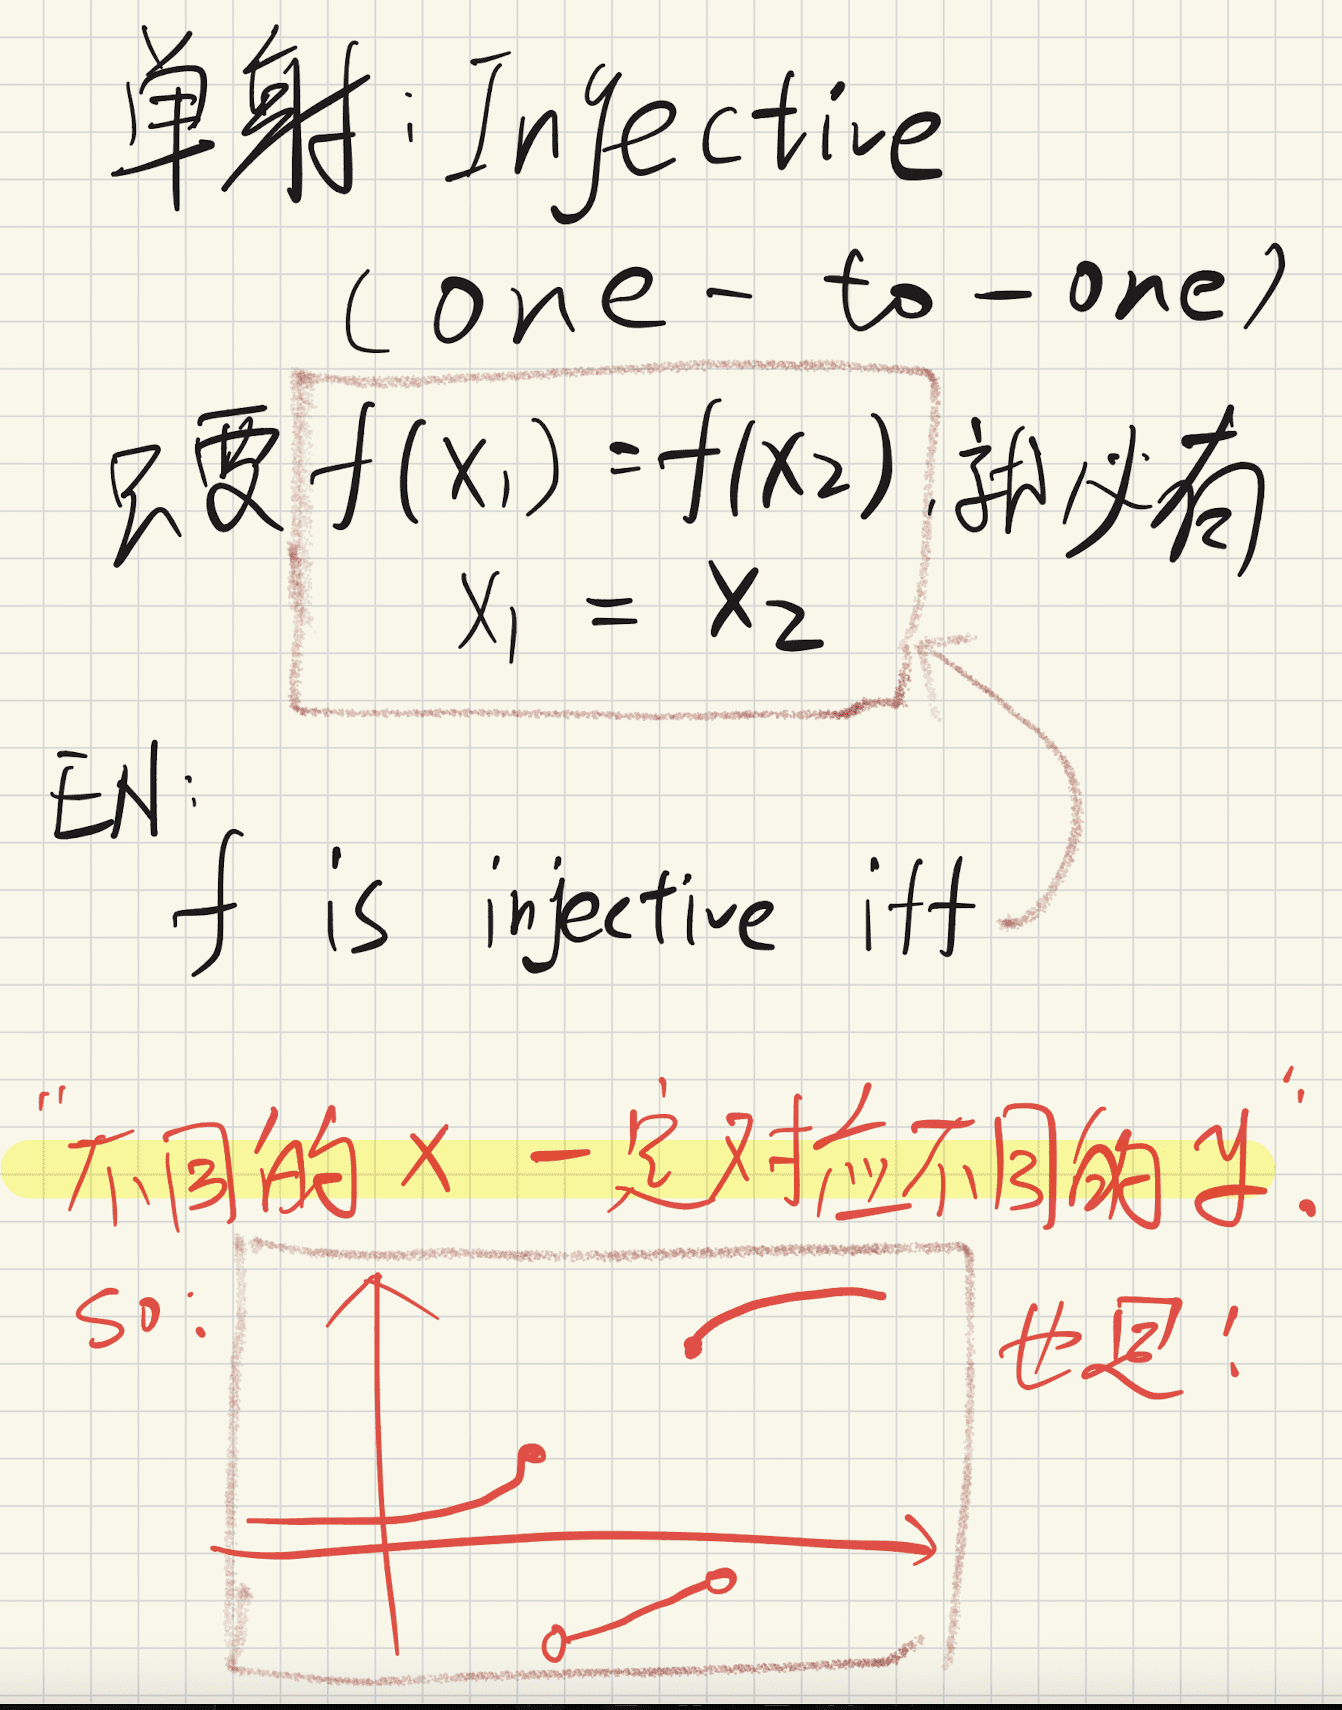 单射: Injective
(one-to-one)
只要 f(x₁) = f(x₂), 就必有
x₁ = x₂
EN:
f is injective iff
"不同的 x 一定对应不同的 y".
so:
也是!